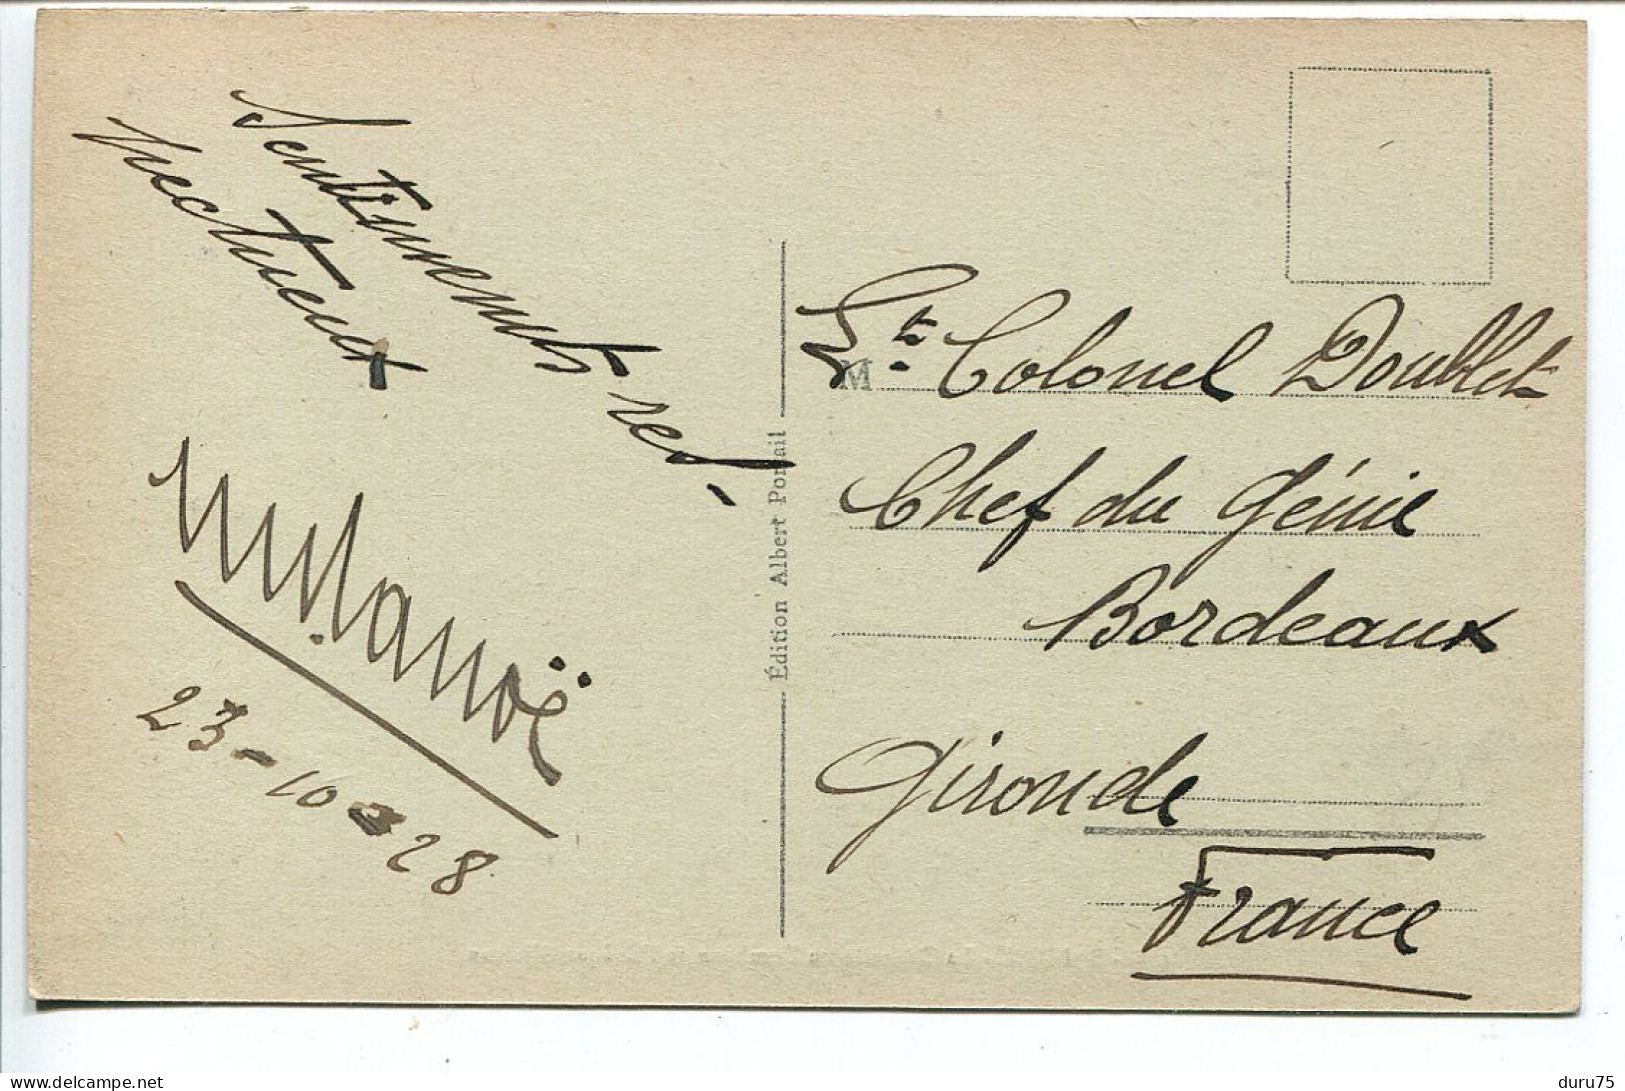 Sentiments res-
pectueux
23-10-28
Édition Albert Portail
M
Lt. Colonel Doublet
Chef du Génie
Bordeaux
Gironde
France
delcampe.net
duru75